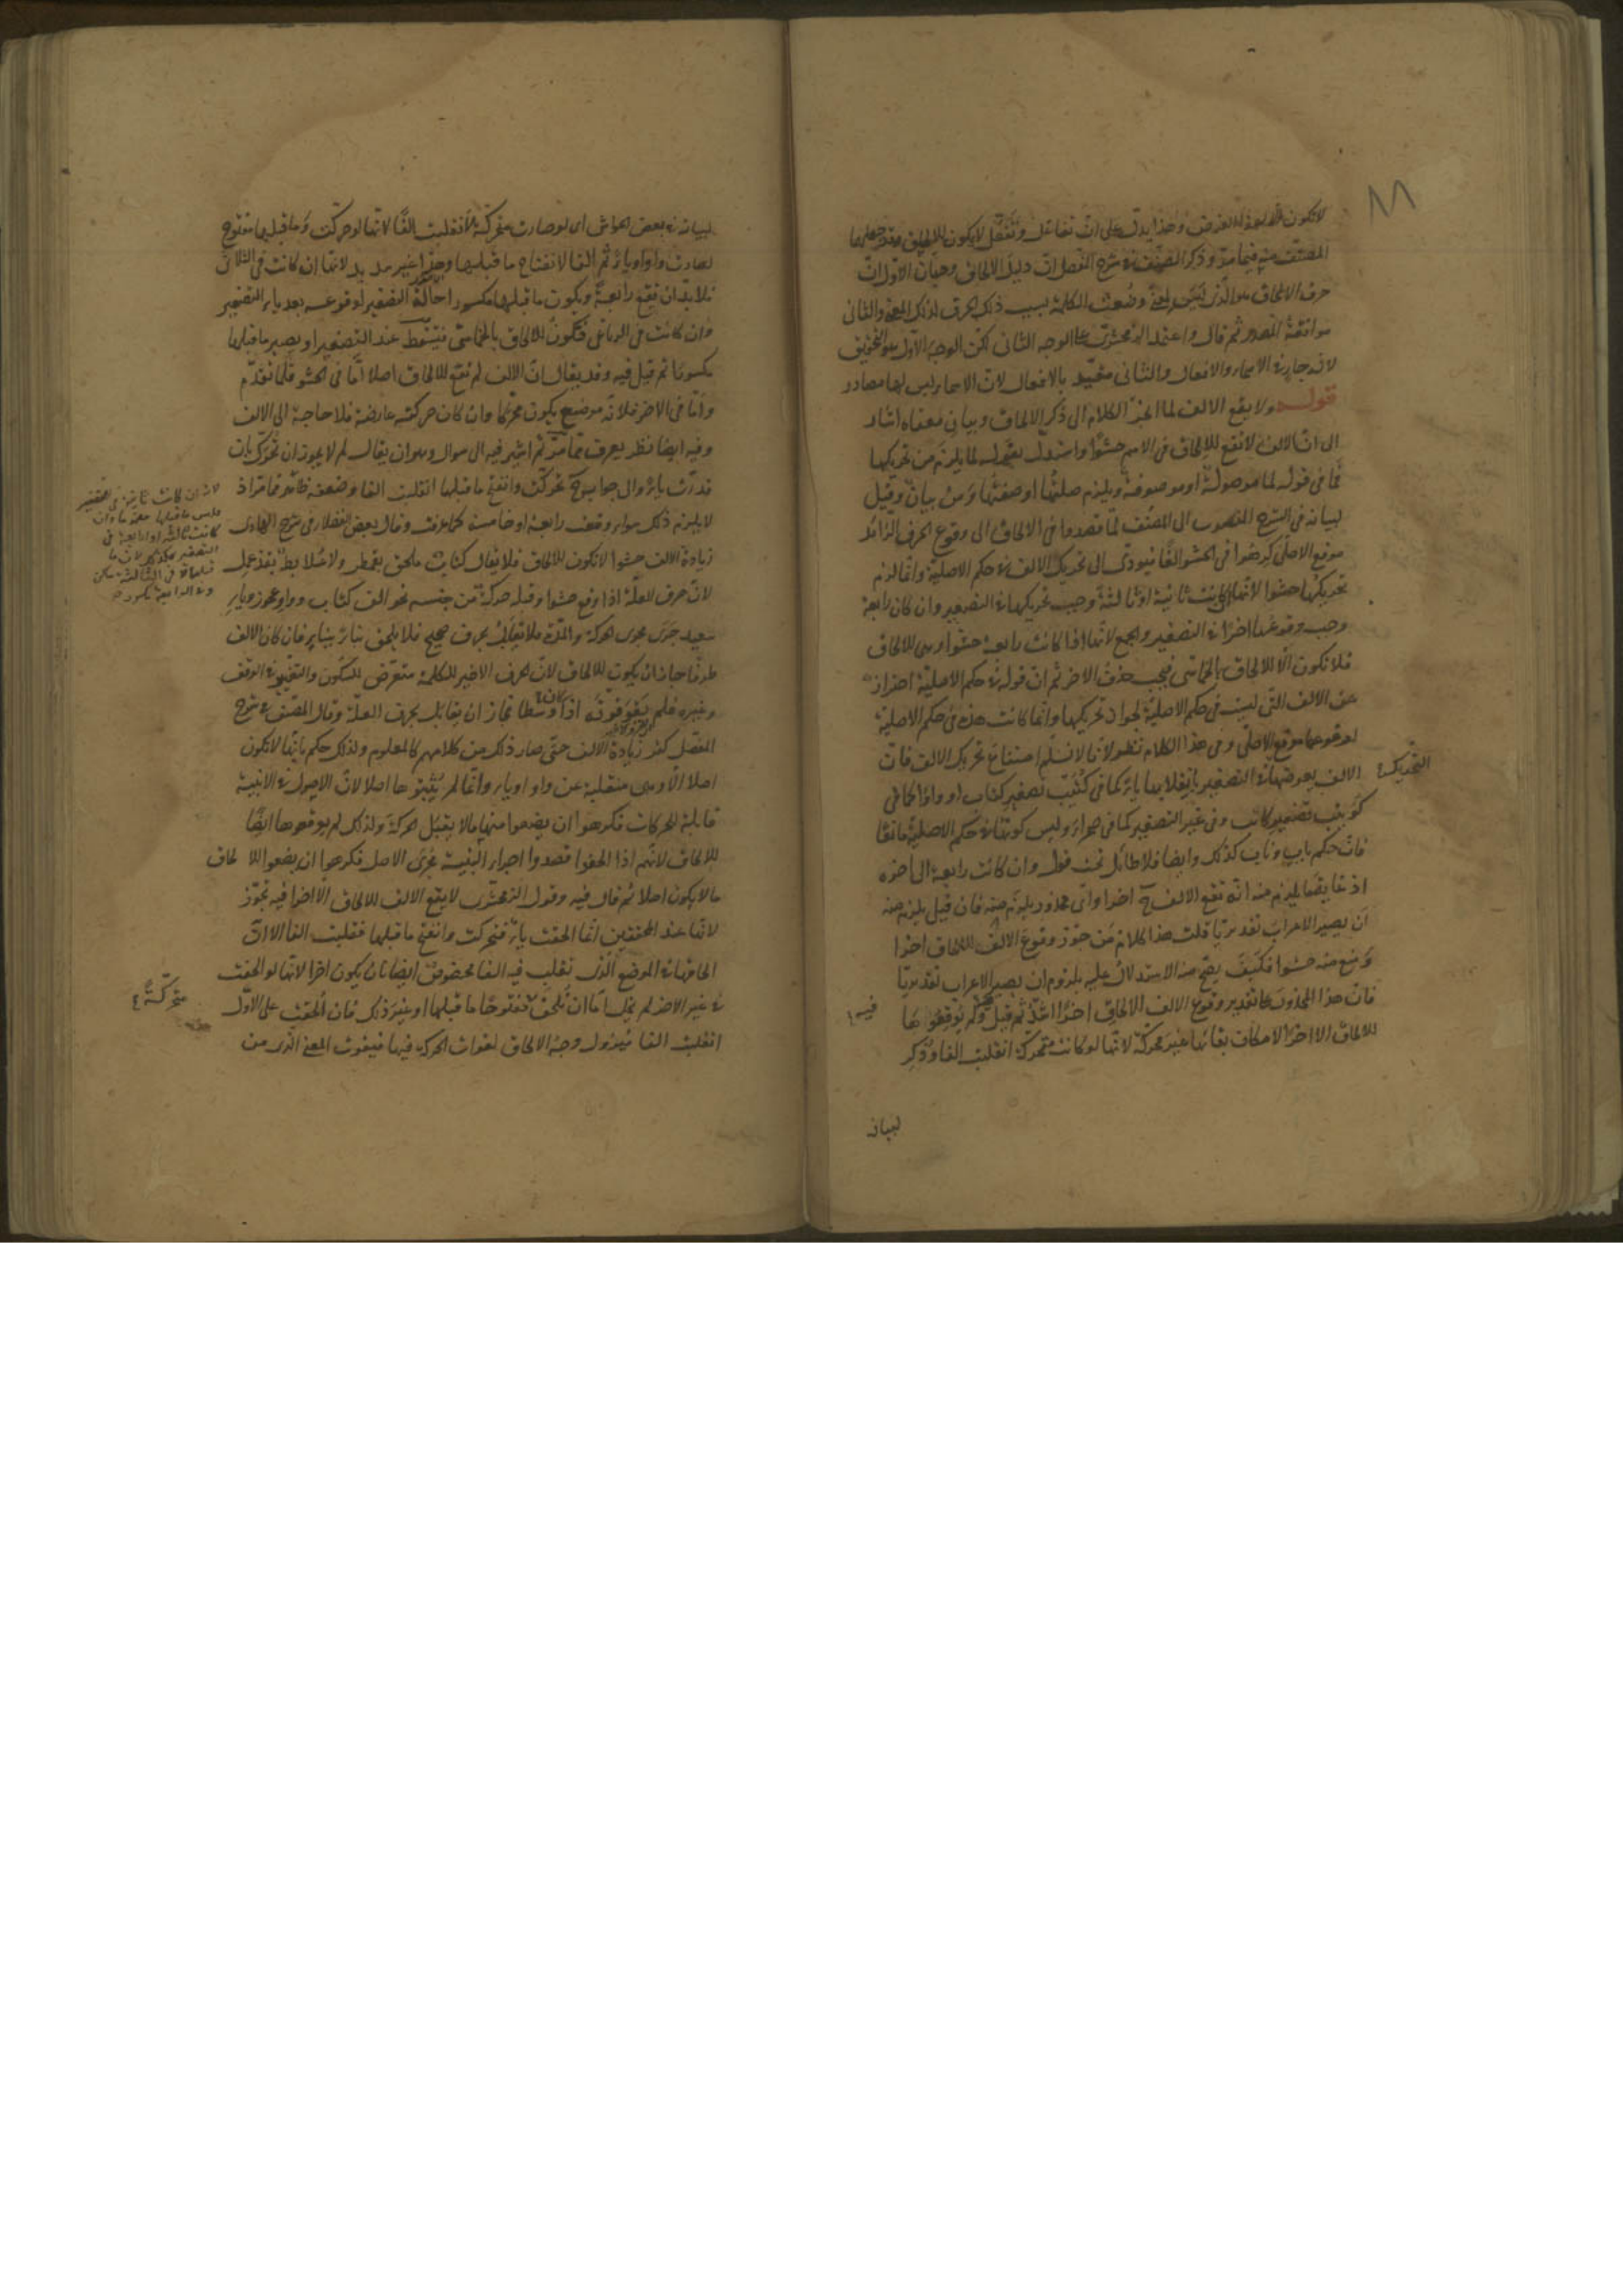 لا تكون للالحاق وهذا يدل على ان تفاعل وتفعل لا يكون للالحاق
المصنف منه فيما مر وذكر المصنف في شرح المفصل ان دليل الالحاق وجهان الاول ان
حرف الالحاق هو الذي ليس لمعنى وضعت الكلمة بسبب ذلك الحرف لذلك المعنى والثاني
موافقة المصدر ثم قال واعتمد الزمخشري على الوجه الثاني لكن الوجه الاول هو التحقيق
لانه جار في الاسماء والافعال والثاني مقيد بالافعال لان الاسماء ليس لها مصادر
قوله ولا يقع الالف لما انجر الكلام الى ذكر الالحاق وبيان معناه اشار
الى ان الالف لا تقع للالحاق في الاسم حشوا واستدل بقوله لما يلزم من تحريكها
فما في قوله لما موصولة او موصوفة ويلزم صلتها او صفتها ومن بيان وقيل
لبيانه في الشرح المنسوب الى المصنف لما قصدوا في الالحاق الى وقوع الحرف الزائد
موقع الاصلي كرهوا في الحشو الفا فيؤدى الى تحريك الالف في حكم الاصلية وانما لزم
تحريكها حشوا لانها ان كانت ثانية او ثالثة وجب تحريكها في التصغير وان كان رابعة
وجب وقوعها اخرا في التصغير والجمع لانها اذا كانت رابعة حشوا وهي للالحاق
فلا تكون الا للالحاق بالخماسي فيجب حذف الاخر ثم ان قوله في حكم الاصلية احتراز
عن الالف التي ليست في حكم الاصلية لجواز تحريكها وانما كانت هذه في حكم الاصلية
لوقوعها موقع الاصلي وفي هذا الكلام نظر لانا لا نسلم امتناع تحريك الالف فان
التحريك
الالف يعرضها في التصغير بانقلابها ياء كما في كتيب تصغير كتاب او واوا كما في
كويتب تصغير كاتب وفي غير التصغير كما في حمراء وليس كونها في حكم الاصلية مانعا
فان حكم باب وناب كذلك وايضا فلا طائل تحت قوله وان كانت رابعة الى اخره
اذ غاية ما يلزم منه انه تقع الالف ح اخرا واي محذور يلزم منه فان قيل يلزم منه
ان يصير الاعراب تقديريا قلت هذا كلام من جوز وقوع الالف للالحاق اخرا
ومنع منه حشوا فكيف يصح منه الاستدلال عليه بلزوم ان يصير الاعراب تقديريا
فان هذا المحذور على تقدير وقوع الالف للالحاق اخرا اشد ثم قيل ولم يوقعوها
فيه
للالحاق الا اخرا لامكان بقائها غير محركة لانها لو كانت متحركة انقلبت الفا وذكر
لبيانه
لبيانه في بعض الحواشي اي لو صارت متحركة لانقلبت الفا لانها لو حركت وما قبلها مفتوح
لصارت واوا او ياء ثم الفا لانفتاح ما قبلها وهذا غير سديد لانها ان كانت في الثلاثي
فلا بد ان تقع رابعة ويكون ما قبلها مكسورا حالة التصغير لوقوعه بعد ياء التصغير
وان كانت في الرباعي فتكون للالحاق بالخماسي فيسقط عند التصغير او يصير ما قبلها
مكسورا ثم قيل فيه وقد يقال ان الالف لم تقع للالحاق اصلا اما في الحشو فلما تقدم
واما في الاخر فلانه موضع يكون محركا وان كان حركته عارضة فلا حاجة الى الالف
وفيه ايضا نظر يعرف مما مر ثم اشير فيه الى سؤال وهو ان يقال لم لا يجوز ان تحرك بان
قدرت ياء والجواب ح تحركت وانفتح ما قبلها انقلبت الفا وضعفه ظاهر فما مر اذ
لا يلزم ذلك سواء وقعت رابعة او خامسة كما عرفت وقال بعض الفضلاء في شرح الهادي
زيادة الالف حشوا لا تكون للالحاق فلا يقال كتاب ملحق بقمطر ولا علابط بقذعمل
لان حرف العلة اذا وقع حشوا وقبله حركة من جنسه نحو الف كتاب وواو عجوز وياء
سعيد جرى مجرى الحركة والمدة فلا تقابل بحرف صحيح فلا يلحق بناء ببناء فان كان الالف
طرفا جاز ان يكون للالحاق لان الحرف الاخير للكلمة متعرض للسكون والتغيير في الوقف
وغيره فلم يقو قوته اذا كان وسطا فجاز ان يقابل بحرف العلة وقال المصنف في شرح
المفصل كثر زيادة الالف حتى صار ذلك من كلامهم كالمعلوم ولذلك حكم بانها لا تكون
اصلا الا وهي منقلبة عن واو او ياء وانما لم يثبتوها اصلا لان الاصول في الابنية
قابلة للحركات فكرهوا ان يضعوا منها ما لا يقبل الحركة ولذلك لم يوقعوها ايضا
للالحاق لانهم اذا الحقوا قصدوا اجراء البنية مجرى الاصل فكرهوا ان يضعوا للالحاق
ما لا يكون اصلا ثم قال فيه وقول الزمخشري لا يقع الالف للالحاق الا اخرا فيه تجوز
لانها عند المحققين انما الحقت ياء فتحركت وانفتح ما قبلها فقلبت الفا الا ان
الحاقها في الموضع الذي تقلب فيه الفا مخصوص ايضا بان يكون اخرا لانها لو الحقت
في غير الاخر لم يخل اما ان تلحق مفتوحا ما قبلها او غير ذلك فان الحقت على الاول
متحركة
انقلبت الفا فيزول وجه الالحاق لفوات الحركة فيها فيفوت المعنى الذي من